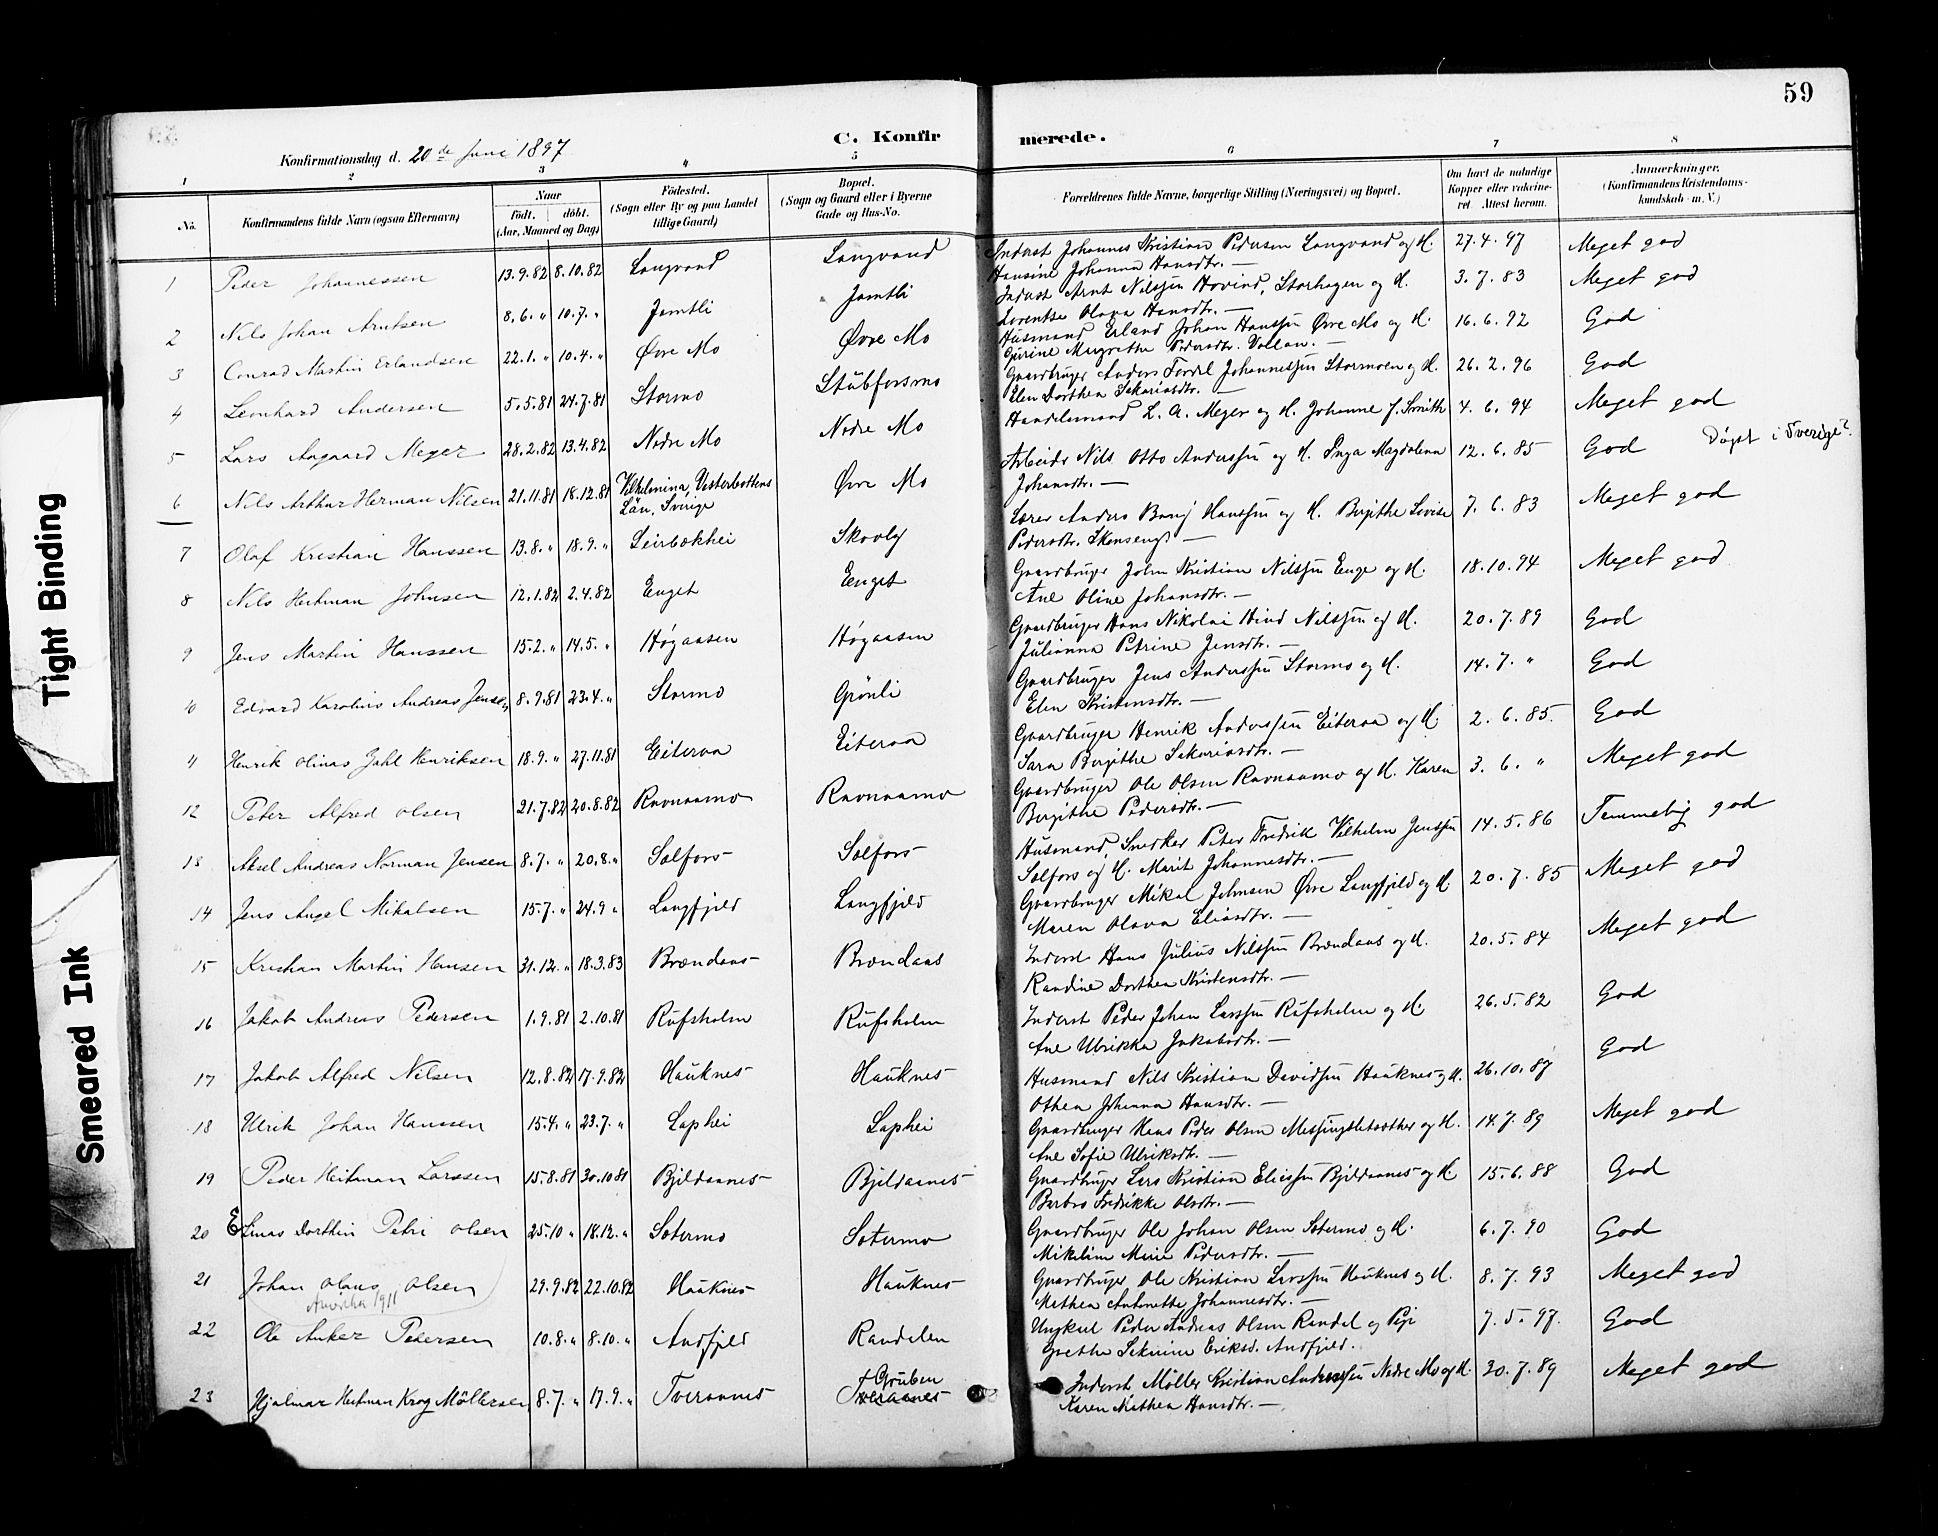 59
C. Konfirmerede.
Konfirmationsdag d. 20de Juni 1897
1 2 3 4 5 6 7 8
No.
Konfirmandens fulde Navn (ogsaa Efternavn)
Naar
Födt. döbt.
(Aar, Maaned og Dag)
Födested.
(Sogn eller By og paa Landet
tillige Gaard)
Bopæl.
(Sogn og Gaard eller i Byerne
Gade og Hus-No.
Forældrenes fulde Navne, borgerlige Stilling (Næringsvei) og Bopæl.
Om havt de naturlige
Kopper eller vakcine-
ret. Attest herom.
Anmærkninger.
(Konfirmandens Kristendoms-
kundskab m. V.)
1 Peder Johannessen 13.9.82 8.10.82 Langvand Langvand Inderst Johannes Kristian Pedersen Langvand og H. 27.4.97 Meget god
Hansine Johanna Hansdtr. —
2 Nils Johan Arntsen 8.6. " 10.7. " Jamtli Jamtli Inderst Arnt Nilssen Hovind, Storhagen og H. 3.7.83 Meget god
Lorentse Olava Hansdtr. —
3 Conrad Martin Erlandsen 22.1. " 10.4. " Øvre Mo Øvre Mo Husmand Erland Johan Hanssen Øvre Mo og H. 16.6.92 God
Gjurine Margrethe Pedersdtr. Vollan. —
4 Leonhard Andersen 5.5.81 24.7.81 Stormo Stubforsmo Gaardbruger Anders Johannessen Stormoen og H. 26.2.96 God
Elen Dorthea Sakariasdtr. —
5 Lars Aagaard Meyer 28.2.82 13.4.82 Nedre Mo Nedre Mo Handelsmand L. A. Meyer og H. Johanne J. Smith 4.6.94 Meget god
6 Nils Arthur Herman Nilsen 21.11.81 18.12.81 Vilhelmina, Vesterbottens Øvre Mo Arbeider Nils Otto Anderssen og H. Inga Magdalena 12.6.85 God Døpt i Sverige?
Län, Sverige Johansdtr. —
7 Olaf Kristian Hanssen 13.8. " 18.9. " Leirbækhei Skovly Lærer Anders Hanssen og H. Birgithe Lovise 7.6.83 Meget god
Pedersdtr. —
8 Nils Heitman Johnsen 12.1.82 2.4.82 Enget Enget Gaardbruger John Kristian Nilssen Enge og H. 18.10.94 Meget god
Ane Oline Johansdtr. —
9 Jens Martin Hanssen 15.2. " 14.5. " Høgaasen Høgaasen Gaardbruger Hans Nikolai Hind Nilssen og H. 20.7.89 God
Julianna Petrine Jensdtr. —
10 Edvard Karolius Andreas Jensen 8.9.81 23.4. " Stormo Grönli Gaardbruger Jens Anderssen Stormo og H. 14.7. " God
Elen Kristensdtr. —
11 Henrik Olinas Dahl Henriksen 18.9. " 27.11.81 Eiteraa Eiteraa Gaardbruger Henrik Anderssen Eiteraa og H. 2.6.85. God
Sara Birgithe Sakariasdtr. —
12 Peter Alfred Olsen 21.7.82 20.8.82 Ravnaamo Ravnaamo Gaardbruger Ole Olsen Ravnaamo og H. Karen 3.6. " Meget god
Birgithe Pedersdtr. —
13 Aksel Andreas Norman Jensen 8.7. " 20.8. " Selfors Selfors Husmand, Snedker Peter Fredrik Vilhelm Jenssen 14.5.86 Temmelig god
Selfors og H. Marit Johannesdtr. —
14 Jens Angel Mikalsen 15.7. " 24.9. " Langfjeld Langfjeld Gaardbruger Mikal Johnsen Øvre Langfjeld og H. 20.7.85 Meget god
Maren Olava Eliasdtr. —
15 Kristian Martin Hansen 31.12. " 18.3.83 Brændaas Brændaas Inderst Hans Julius Nilssen Brændaas og H. 20.5.84 Meget god
Randine Dorthea Kristensdtr. —
16 Jakob Andreas Pedersen 1.9.81 2.10.81 Rufsholm Rufsholm Inderst Peder Johan Larssen Rufsholm og H. 26.5.82 God
Ane Ulrikka Jakobsdtr. —
17 Jakob Alfred Nilsen 12.8.82 17.9.82 Hauknes Hauknes Husmand Nils Kristian Davidssen Hauknes og H. 26.10.87 God
Othea Johanna Hansdtr. —
18 Ulrik Johan Hanssen 15.4. " 23.7. " Laphei Laphei Gaardbruger Hans Peder Olsen Messingsletsæther og H. 14.7.89 Meget god
Ane Sofie Ulriksdtr. —
19 Peder Heitman Larssen 15.8.81 30.10.81 Bjeldaanes Bjeldaanes Gaardbruger Lars Kristian Eliassen Bjeldaanes og H. 15.6.88 God
Barbro Fredrikke Olsdtr. —
20 Elinas Dorthin Petri Olsen 25.10 " 18.12. " Sætermo Sætermo Gaardbruger Ole Johan Olsen Sætermo og H. 6.7.90 God
Mikaline Marie Pedersdtr. —
21 Johan Olaus Olsen 29.9.82 22.10.82 Hauknes Hauknes Gaardbruger Ole Kristian Larssen Hauknes og H. 8.7.93 Meget god
Amerika 1911 Mathea Antonette Johannesdtr. —
22 Ole Anker Petersen 10.8. " 8.10. " Andfjeld Randalen Ungkarl Peder Andreas Olsen Randal og Pige 7.5.97. God
Grethe Eriksd. Andfjeld.
23 Hjalmar Heitman Krog Möllersen 8.7. " 17.9. " Tveraanes Gruben Tveraanes Inderst Möller Kristian Anderssen Nedre Mo og H. 30.7.89 Meget god
Karen Mathea Hansdtr. —
Tight Binding
Smeared Ink